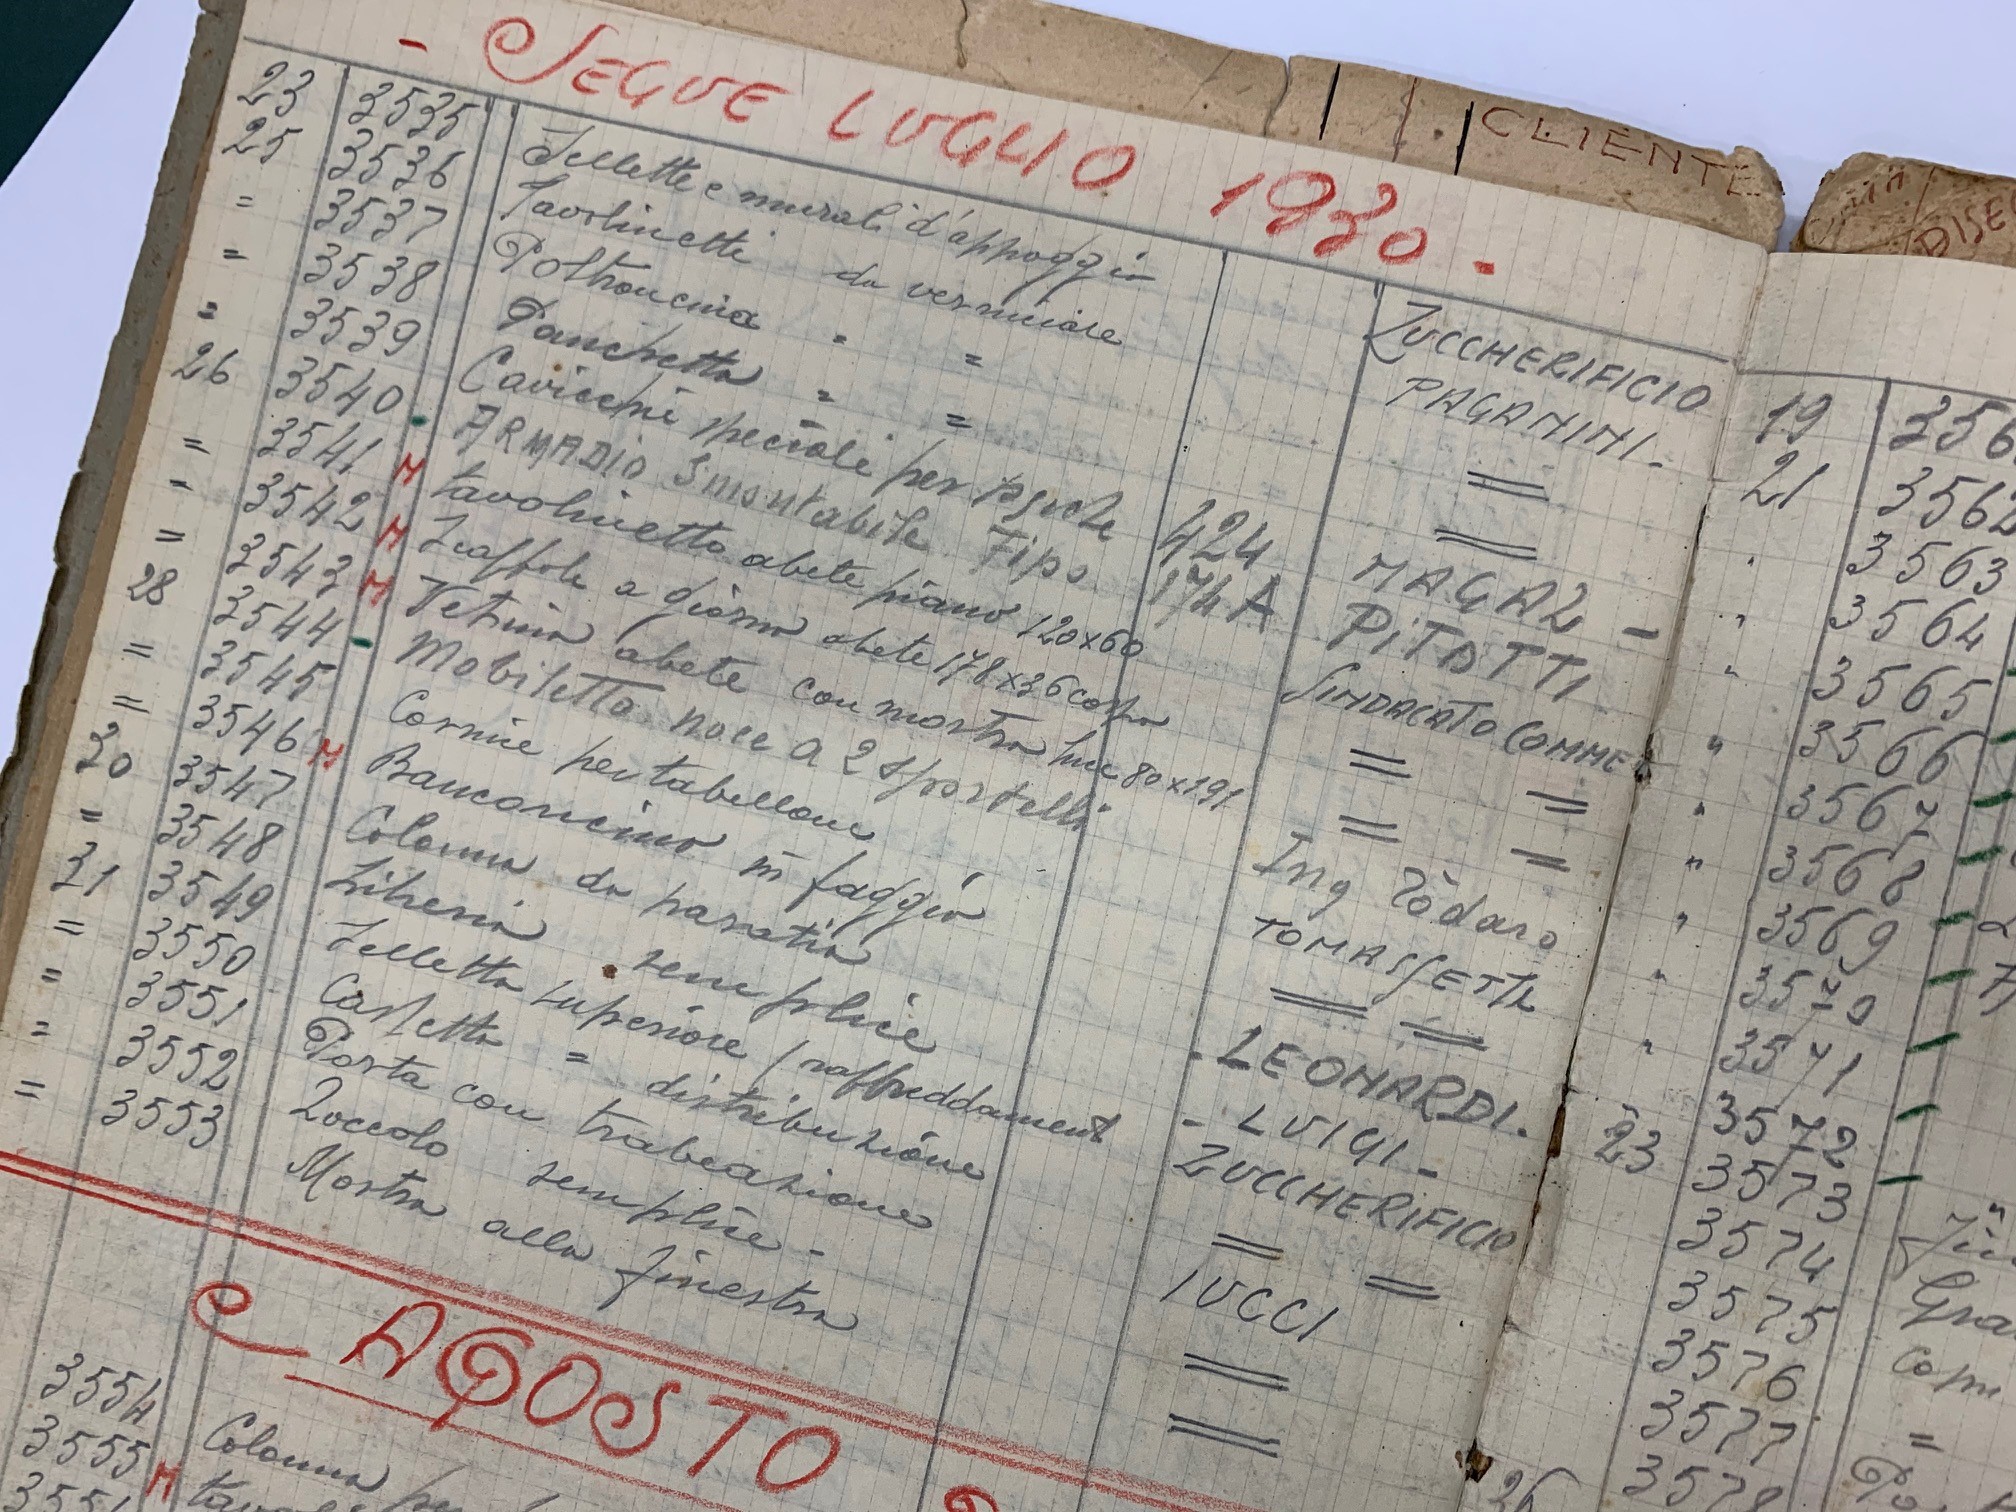 - SEGUE LUGLIO 1930 -
CLIENTE
DISE
23 3535 Sellette e murali d'appoggio ZUCCHERIFICIO
25 3536 Tavolinetti da verniciare PAGANINI -
= 3537 Poltroncina " = =
= 3538 Panchetta " = =
= 3539 Cavicchi speciali per psiche MAGAZ -
26 3540 - ARMADIO Smontabile Tipo 424 PITOTTI
= 3541 M tavolinetto abete piano 120x60 174A SINDACATO COMME
= 3542 M Scaffole a giorno abete 178x36 = =
= 3543 M Vetrina abete con mostra luce 80x191 = =
28 3544 - Mobiletto noce a 2 sportelli Ing Tòdaro
= 3545 Cornice per tabellone TOMASSETTI
= 3546 M Banconcino in faggio = =
30 3547 Colonna da paratia - LEONARDI.
= 3548 Libreria semplice - LUIGI -
31 3549 Selletta superiore / raffreddament ZUCCHERIFICIO
= 3550 Cassetta = distribuzione = =
= 3551 Porta con trabeazione IUCCI
= 3552 Zoccolo semplice - =
= 3553 Mostra alla finestra =
AGOSTO
3554 Colonna
3555 M
19 356
21 3562
" 3563
" 3564
" 3565
" 3566
" 3567
" 3568
" 3569
" 3570
" 3571
3572
23 3573
3574
3575 Gra
3576
3577 =
26 3578